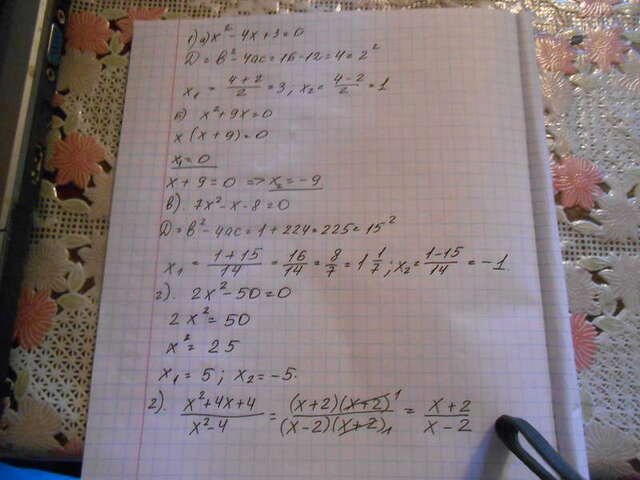 1) а) x² - 4x + 3 = 0
D = b² - 4ac = 16 - 12 = 4 = 2²
x₁ = (4+2)/2 = 3; x₂ = (4-2)/2 = 1
б) x² + 9x = 0
x(x+9) = 0
x₁ = 0
x + 9 = 0 => x₂ = -9
в). 7x² - x - 8 = 0
D = b² - 4ac = 1 + 224 = 225 = 15²
x₁ = (1+15)/14 = 16/14 = 8/7 = 1 1/7; x₂ = (1-15)/14 = -1
г). 2x² - 50 = 0
2x² = 50
x² = 25
x₁ = 5; x₂ = -5.
2). (x²+4x+4)/(x²-4) = (x+2)(x+2)¹/(x-2)(x+2)₁ = (x+2)/(x-2)